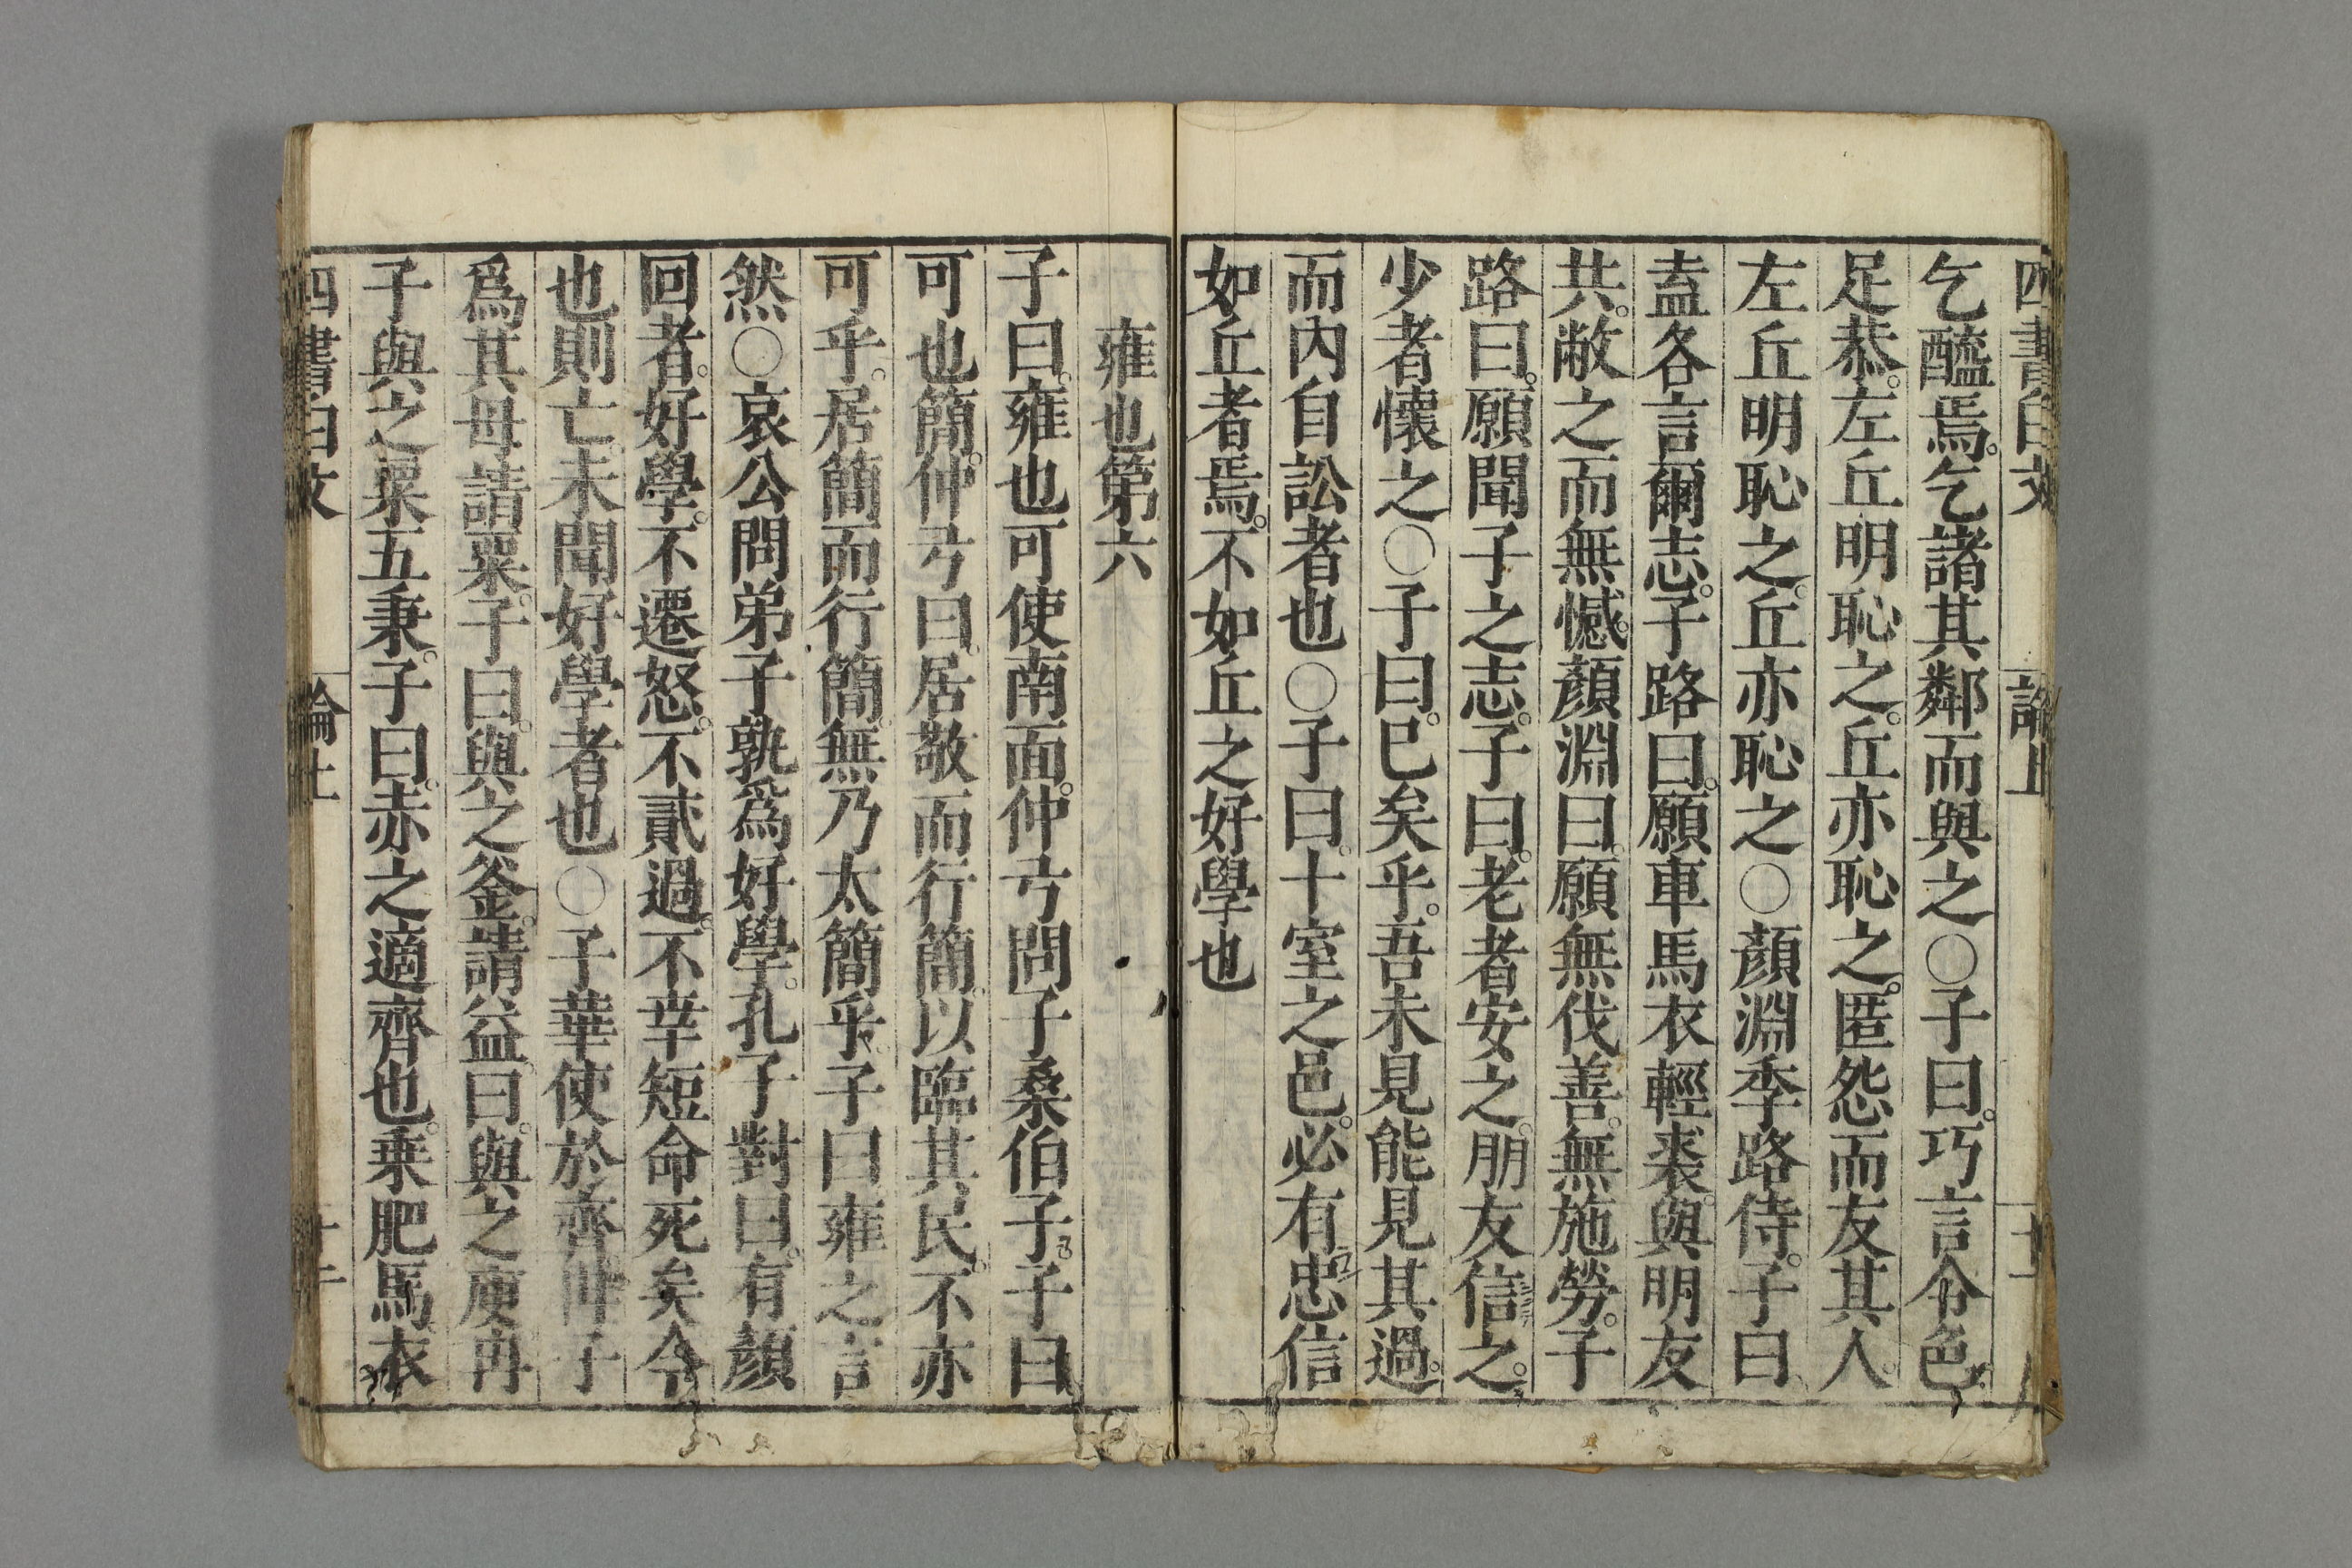 四書白文 論上 十一
乞醯焉。乞諸其鄰而與之○子曰。巧言令色。
足恭。左丘明恥之。丘亦恥之。匿怨而友其人。
左丘明恥之。丘亦恥之○顏淵季路侍。子曰
盍各言爾志。子路曰。願車馬衣輕裘。與明友
共。敝之而無憾。顏淵曰。願無伐善。無施勞。子
路曰。願聞子之志。子曰。老者安之。朋友信之。
少者懷之○子曰。已矣乎。吾未見能見其過。
而內自訟者也○子曰。十室之邑。必有忠信
如丘者焉。不如丘之好學也
雍也第六
子曰。雍也可使南面。仲弓問子桑伯子。子曰。
可也簡。仲弓曰。居敬而行簡。以臨其民。不亦
可乎。居簡而行簡。無乃太簡乎。子曰雍之言
然○哀公問弟子孰爲好學。孔子對曰。有顏
回者。好學。不遷怒。不貳過。不幸短命死矣今
也則亡未聞好學者也○子華使於齊。冉子
爲其母請粟。子曰。與之釜。請益。曰。與之庾冉
子與之粟五秉。子曰。赤之適齊也。乗肥馬。衣
四書白文 論上